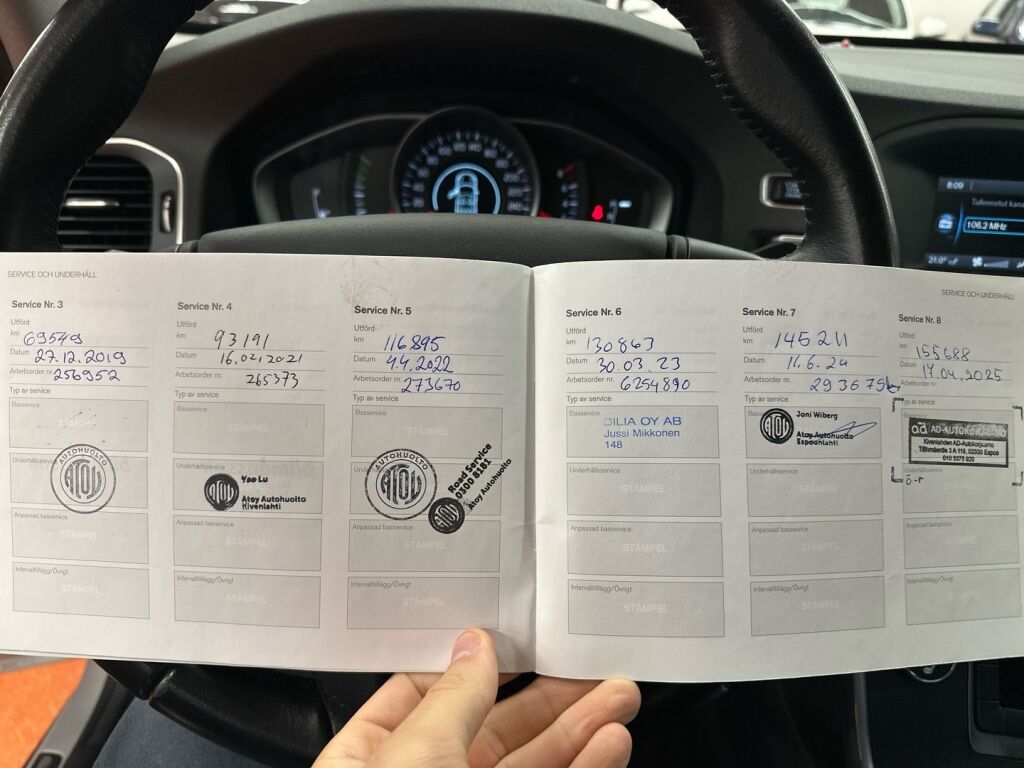 SERVICE OCH UNDERHÅLL
Service Nr. 3
Utförd
km 69549
Datum 27.12.2019
Arbetsorder nr. 256952
Typ av service
Basservice
Underhållsservice
AUTOHUOLTO
ATOY
Anpassad basservice
STÄMPEL
Intervalltillägg/Övrigt
STÄMPEL
Service Nr. 4
Utförd
km 93191
Datum 16.02.2021
Arbetsorder nr. 265373
Typ av service
Basservice
STÄMPEL
Underhållsservice
ATOY
Yao Lu
Atoy Autohuolto
Kivenlahti
Anpassad basservice
STÄMPEL
Intervalltillägg/Övrigt
STÄMPEL
Service Nr. 5
Utförd
km 116895
Datum 4.4.2022
Arbetsorder nr. 273670
Typ av service
Basservice
STÄMPEL
Underhållsservice
AUTOHUOLTO
ATOY
Road Service
Atoy Autohuolto
Anpassad basservice
STÄMPEL
Intervalltillägg/Övrigt
STÄMPEL
Service Nr. 6
Utförd
km 130863
Datum 30.03.23
Arbetsorder nr. 6254890
Typ av service
Basservice
BILIA OY AB
Jussi Mikkonen
148
Underhållsservice
STÄMPEL
Anpassad basservice
STÄMPEL
Intervalltillägg/Övrigt
STÄMPEL
SERVICE OCH UNDERHÅLL
Service Nr. 7
Utförd
km 145211
Datum 11.6.24
Arbetsorder nr.
Typ av service
Basservice
ATOY
Joni Wiberg
Atoy Autohuolto
Espoonlahti
Underhållsservice
STÄMPEL
Anpassad basservice
STÄMPEL
Intervalltillägg/Övrigt
STÄMPEL
Service Nr. 8
Utförd
km 155688
Datum 17.04.2025
Arbetsorder nr.
Typ av service
Basservice
ad AD-AUTOKORJAAMO
Kivenlahden AD-Autokorjaamo
02330 Espoo
010 3375 920
Underhållsservice
ö-r
Anpassad basservice
Intervalltillägg/Övrigt
8:09
Tallennetut kana
106.2 MHz
21.0°